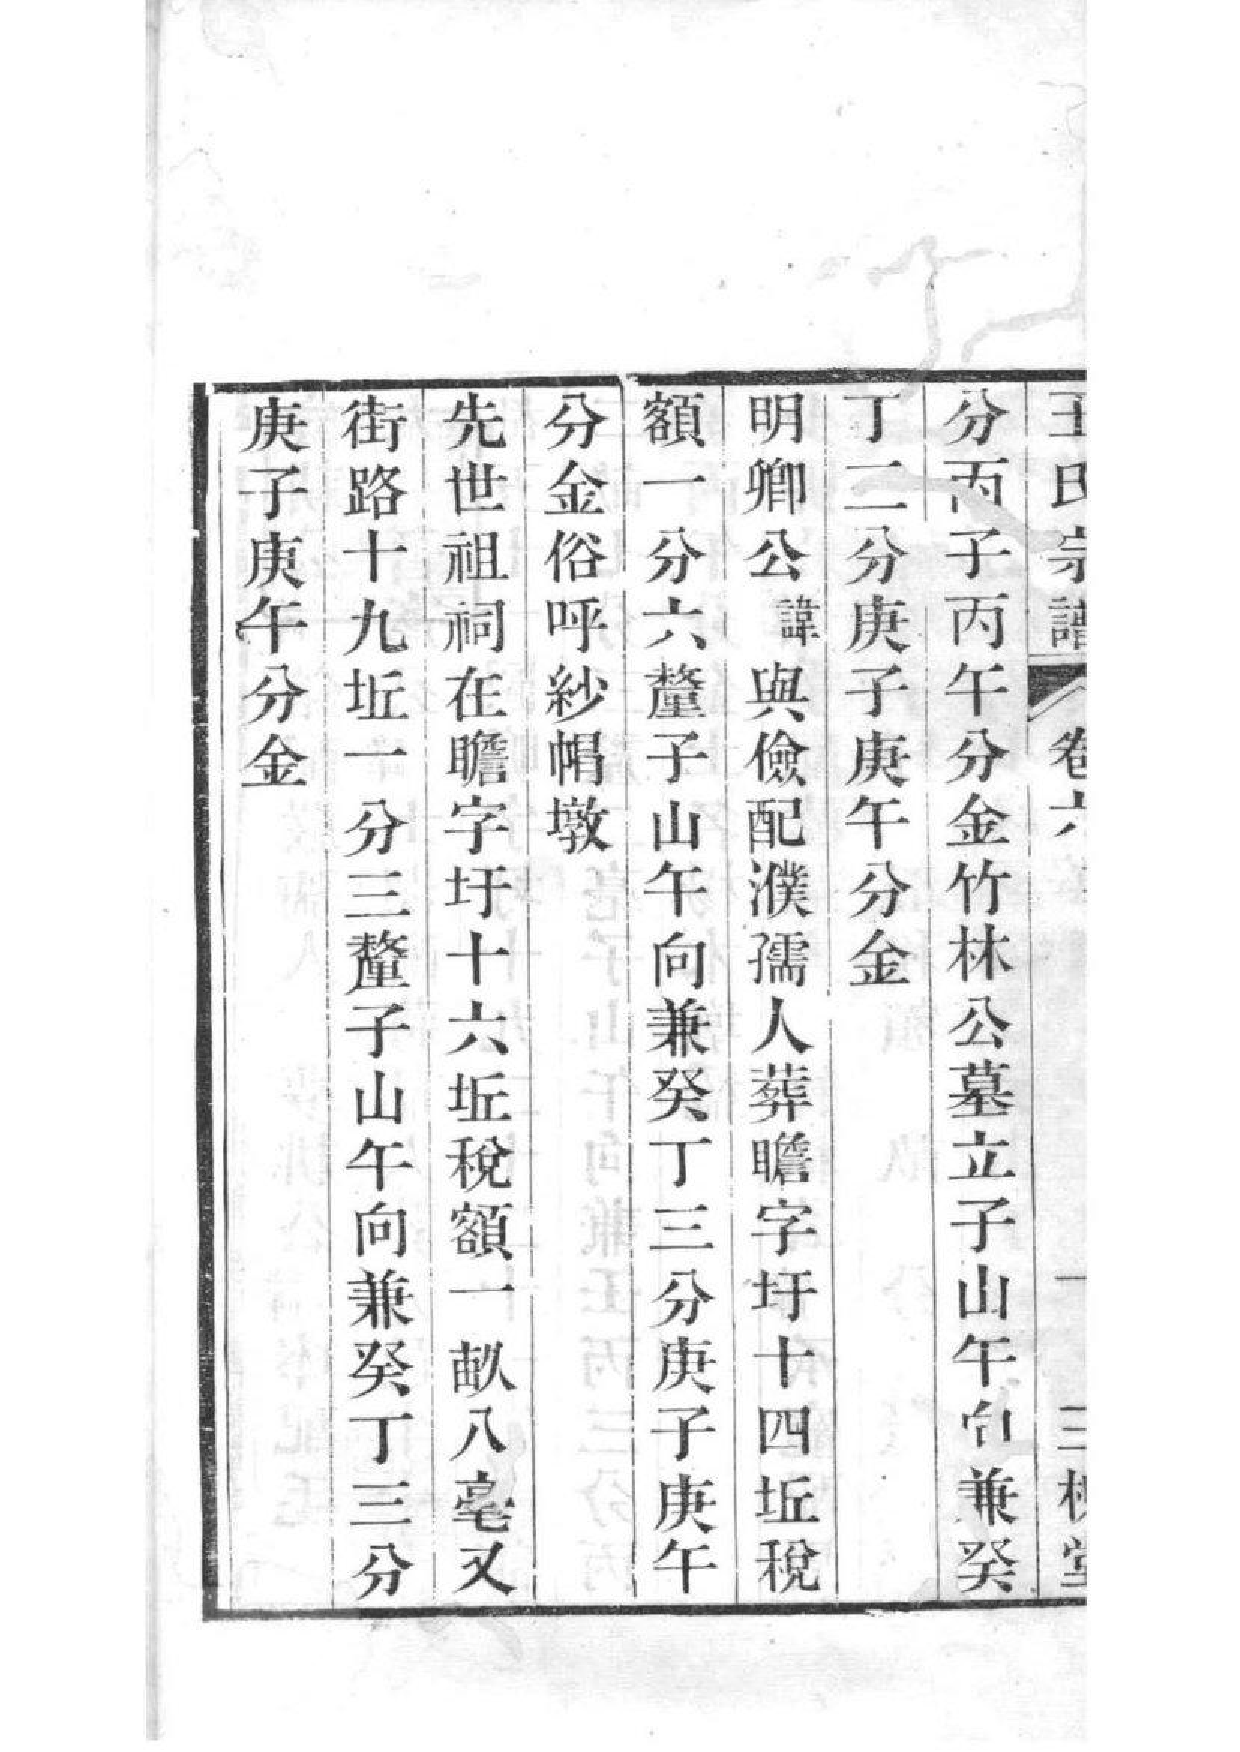 王氏宗譜 卷六 一 三槐堂
分丙子丙午分金竹林公墓立子山午向兼癸
丁二分庚子庚午分金
明卿公諱與儉配濮孺人葬瞻字圩十四坵稅
額一分六釐子山午向兼癸丁三分庚子庚午
分金俗呼紗帽墩
先世祖祠在瞻字圩十六坵稅額一畝八毫又
街路十九坵一分三釐子山午向兼癸丁三分
庚子庚午分金